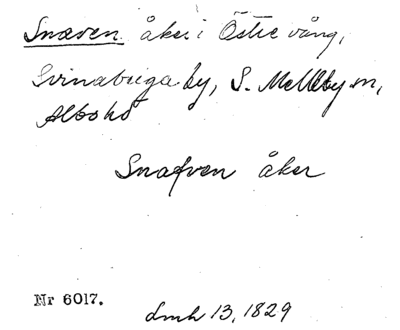 Snæven åker i Östre vång,
Svinabergaby, S. Mellby sn,
Albo hd
Snafven åker
Nr 6017.
Lmh 13, 1829